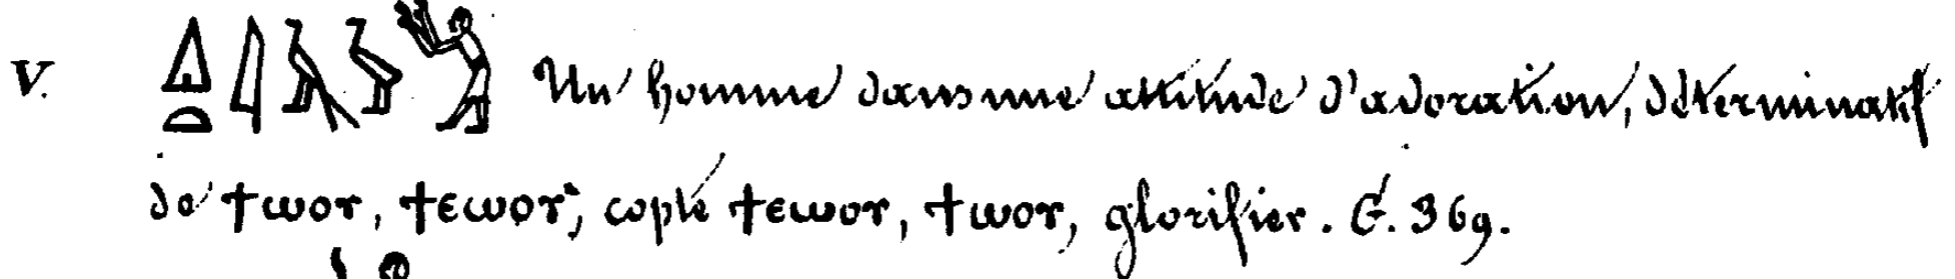 V. Un homme dans une attitude d'adoration, déterminatif
de ϯⲱⲟⲩ, ϯⲉⲱⲟⲩ, copte ϯⲉⲱⲟⲩ, ϯⲱⲟⲩ, glorifier. G. 369.